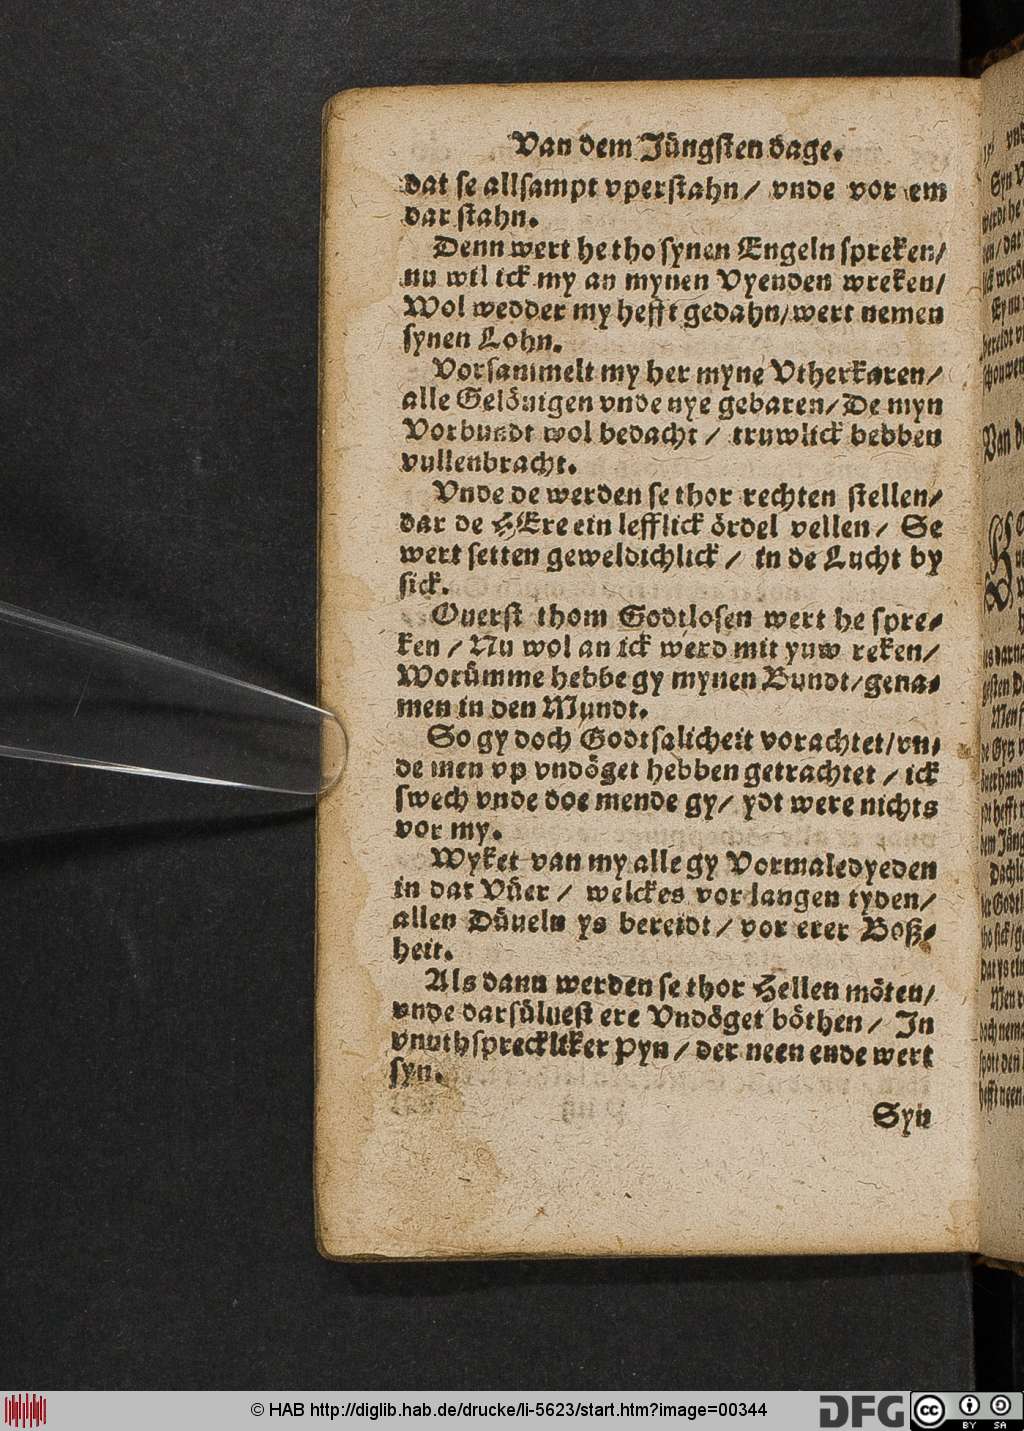 Van dem Jüngsten dage.
dat se allsampt vperstahn/ vnde vor em
dar stahn.
Denn wert he tho synen Engeln spreken/
nu wil ick my an mynen Vyenden wreken/
Wol wedder my hefft gedahn/ wert nemen
synen Lohn.
Vorsammelt my her myne Vtherkaren/
alle Gelöuigen vnde nye gebaren/ De myn
Vorbundt wol bedacht / truwlick hebben
vullenbracht.
Vnde de werden se thor rechten stellen/
dar de HEre ein lefflick ördel vellen/ Se
wert setten geweldichlick / in de Lucht by
sick.
Ouerst thom Godtlosen wert he spre-
ken / Nu wol an ick werd mit yuw reken/
Worümme hebbe gy mynen Bundt/ gena-
men in den Mundt.
So gy doch Godtsalicheit vorachtet/ vn-
de men vp vndöget hebben getrachtet / ick
swech vnde doe mende gy/ ydt were nichts
vor my.
Wyket van my alle gy Vormaledyeden
in dat Vüer / welckes vor langen tyden/
allen Düueln ys bereidt / vor erer Boß-
heit.
Als dann werden se thor Hellen möten/
vnde darsüluest ere Vndöget böthen / In
vnuthsprecklicker Pyn / der neen ende wert
syn.
Syn
© HAB http://diglib.hab.de/drucke/li-5623/start.htm?image=00344
DFG
cc BY SA